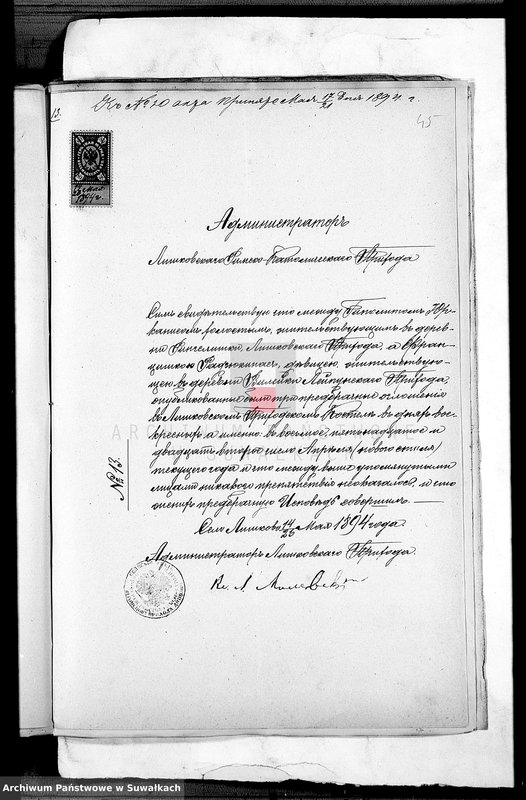 13.
Къ № 10 акта принято Мая 17/29 дня 1894 г.
45
Мая
1894 г.
Администраторъ
Лишковскаго Римско-Католическаго Прихода
Симъ свидѣтельствую что между Гиполитомъ
холостымъ, жительствующимъ въ дерев-
нѣ Лишковскаго Прихода, а Фран-
цишкою дѣвицею, жительствую-
щею въ деревнѣ Вилейки Лейпунскаго Прихода,
опубликованные были три предбрачные оглашенія
въ Лишковскомъ Приходскомъ Костелѣ въ дняхъ вос-
кресныхъ а именно: въ восьмое, пятнадцатое и
двадцать второе число Апрѣля (новаго стиля)
текущего года и что между выше упомянутыми
лицами никакого препятствія не оказалось, и что
женихъ предбрачную Исповѣдь совершилъ.
№ 13.
Село Лишково 14/26 Мая 1894 года
Администраторъ Лишковскаго Прихода.
Кс. А.
ARCHIWUM
Archiwum Państwowe w Suwałkach